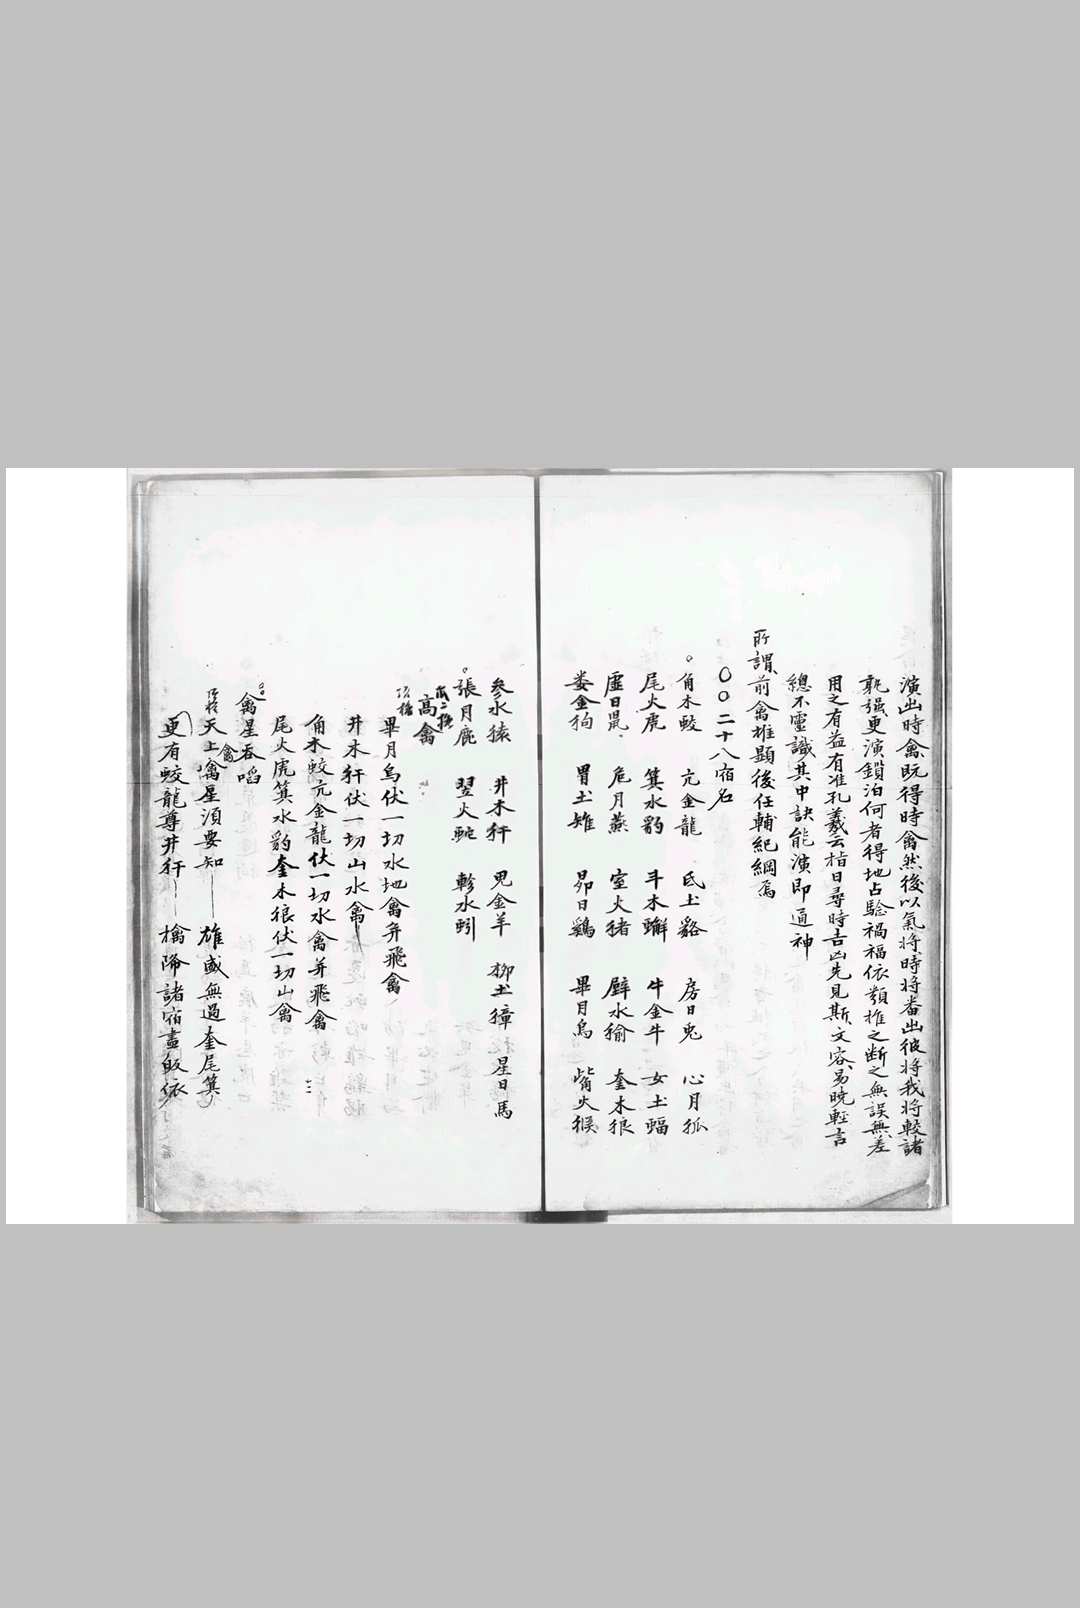 演出時禽既得時禽然後以氣將時將番出彼將我將較諸
孰强更演鎖泊何者得地占驗禍福依類推之断之無誤無差
用之有益有准孔羲云指日尋時吉凶先見斯文容易曉輕言
總不靈識其中訣能演即通神
所謂前禽雄顯後任輔紀綱焉
〇〇二十八宿名
角木蛟 亢金龍 氐土貉 房日兎 心月狐
尾火虎 箕水豹 斗木獬 牛金牛 女土蝠
虛日鼠 危月燕 室火猪 壁水㺄 奎木狼
婁金狗 胃土雉 昴日雞 畢月烏 觜火猴
參水猿 井木犴 鬼金羊 柳土獐 星日馬
張月鹿 翌火蛇 軫水蚓
高禽
畢月烏伏一切水地禽并飛禽
井木犴伏一切山水禽
角木蛟亢金龍伏一切水禽并飛禽
尾火虎箕水豹奎木狼伏一切山禽
禽星吞啗
天上禽星須要知 雄威無過奎尾箕
更有蛟龍尊井犴 擒降諸宿盡皈依